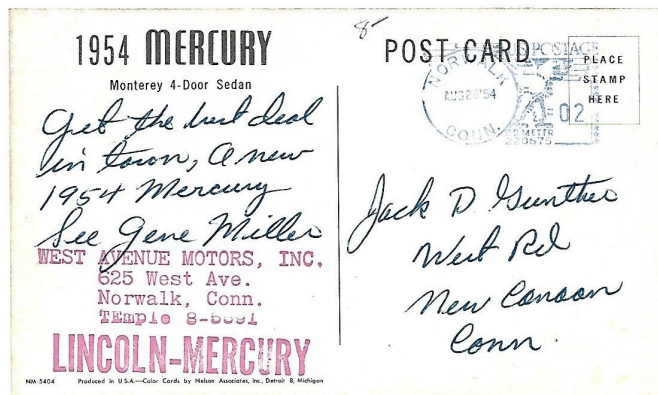 8-
1954 MERCURY
Monterey 4-Door Sedan
Get the best deal
in town, a new
1954 Mercury
See Gene Miller
WEST AVENUE MOTORS, INC.
625 West Ave.
Norwalk, Conn.
TEmple
LINCOLN-MERCURY
NM-5404 Produced in U.S.A.—Color Cards by Nelson Associates, Inc., Detroit 8, Michigan
POST CARD
NORWALK
AUG 26 '54
CONN.
U.S. POSTAGE
02
P.B. METER
220575
PLACE
STAMP
HERE
Jack D Gunther
West Rd
New Canaan
Conn.